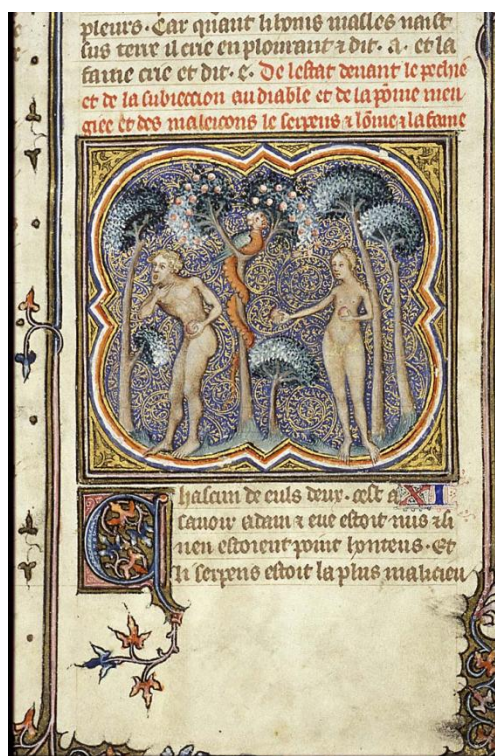 pleurs. Car quant li hons masles naist
sus terre il crie en plourant ⁊ dit. a. et la
fame crie et dit. e. De lestat deuant le pechie
et de la subiection au diable et de la pome men
giee et des maleicons le serpens ⁊ lome ⁊ la fame
Chascun de euls deux. cest a XI
sauoir adam ⁊ eue estoit nus ⁊ si
nen estoient point honteus. Et
li serpens estoit la plus malicieu